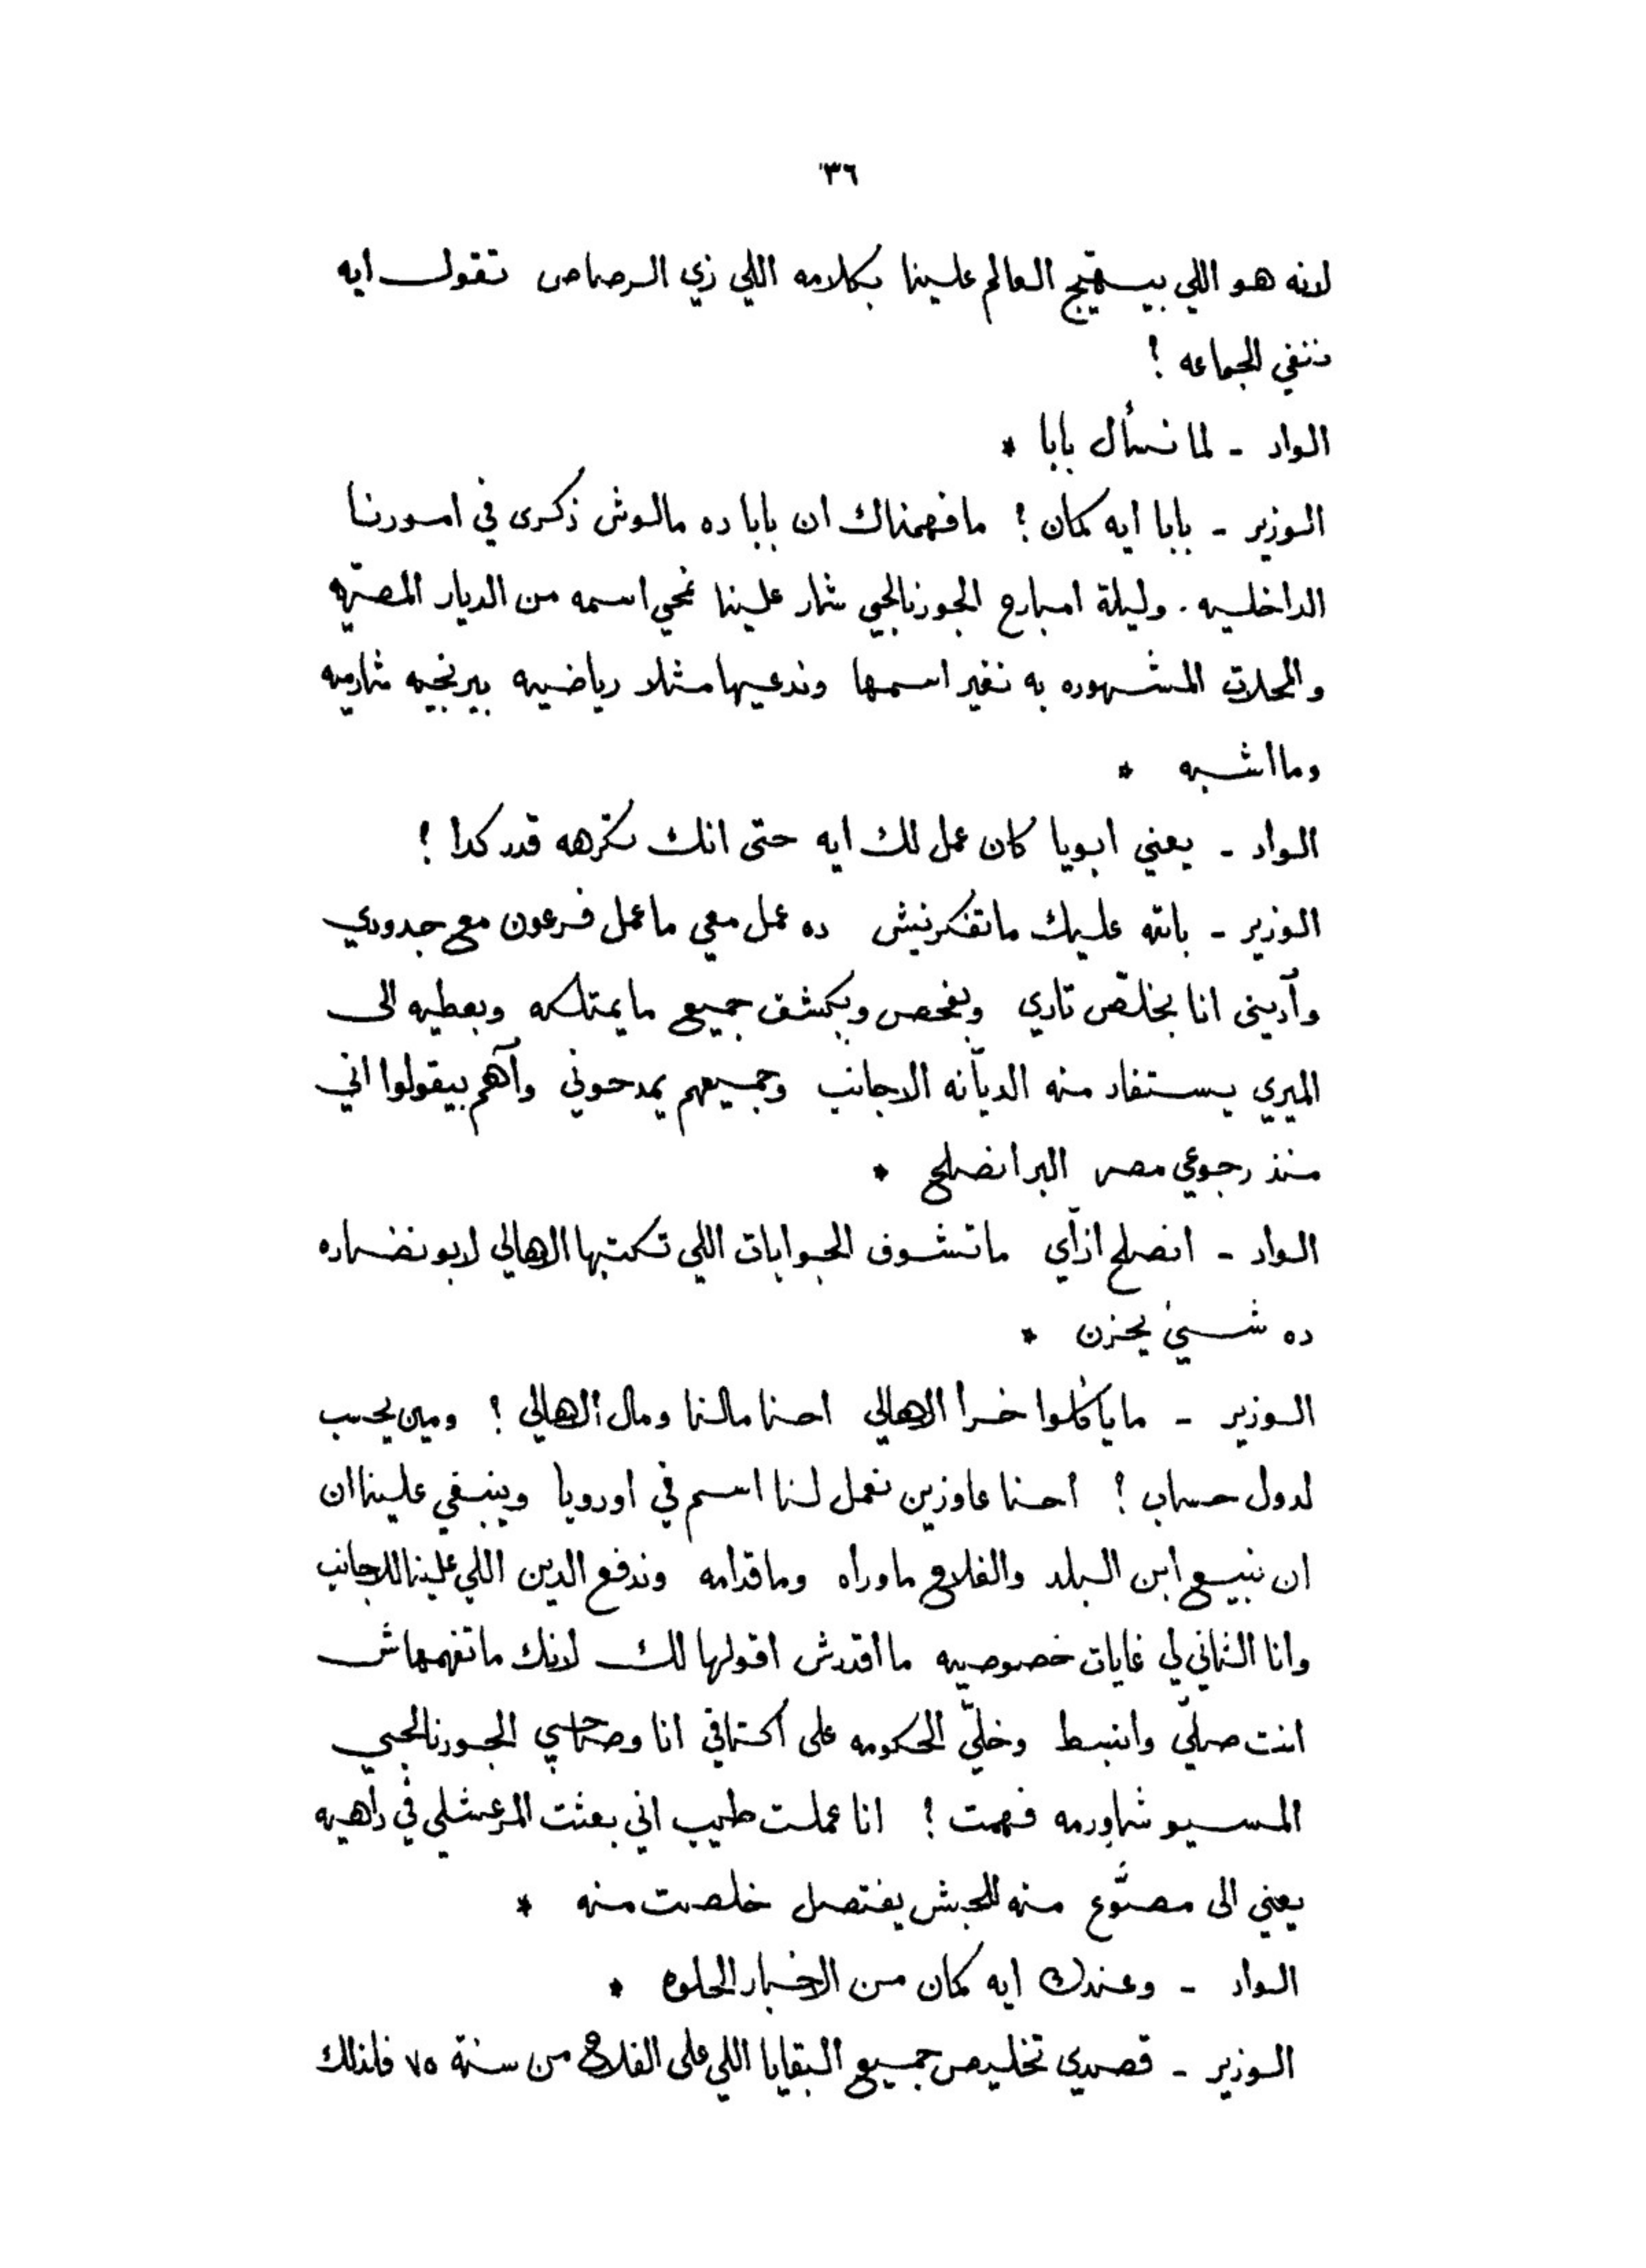 ٣٦
لانه هو اللي بيهيّج العالم علينا بكلامه اللي زي الرصاص تقول ايه
ننفي الجماعه ؟
الواد - لما نسأل بابا *
الوزير - بابا ايه كمان ؟ مافهمناك ان بابا ده مالوش ذكرى في امورنا
الداخليه . وليلة امبارح الجورنالجي شار علينا نمحي اسمه من الديار المصريّه
والمحلات المشهوره به نغير اسمها وندعيها مثلا رياضيه بيرنجيه شارميه
وما اشبه *
الواد - يعني ابويا كان عمل لك ايه حتى انك تكرهه قدر كدا ؟
الوزير - بالله عليك ماتفكرنيش ده عمل معي ما عمل فرعون مع جدودي
وآديني انا بخلّص تاري وبفحص وبكشف جميع ما يمتلكه وبعطيه الى
الميري يستفاد منه الديّانه الاجانب وجميعهم يمدحوني وآهم بيقولوا اني
منذ رجوعي مصر البر انصلح *
الواد - انصلح ازّاي ماتشوف الجوابات اللي تكتبها الاهالي لابو نضاره
ده شيئ يحزن *
الوزير - ما ياكلوا خرا الاهالي احنا مالنا ومال الاهالي ؟ ومين يحسب
لدول حساب ؟ احنا عاوزين نعمل لنا اسم في اوروبا وينبغي علينا ان
ان نبيع ابن البلد والفلاح ماوراه وماقدامه وندفع الدين اللي علينا للاجانب
وانا الثاني لي غايات خصوصيه ما اقدرش اقولها لك لانك ماتفهمهاش
انت صلّي وانبسط وخلّي الحكومه على اكتافي انا وصاحبي الجورنالجي
المسيو شاورمه فهمت ؟ انا عملت طيب اني بعثت المرعشلي في داهيه
يعني الى مصوّع منه للحبش يفتصل خلصت منه *
الواد - وعندك ايه كمان من الاخبار الحلوه *
الوزير - قصدي تخليص جميع البقايا اللي على الفلاح من سنة ٧٥ فلذلك